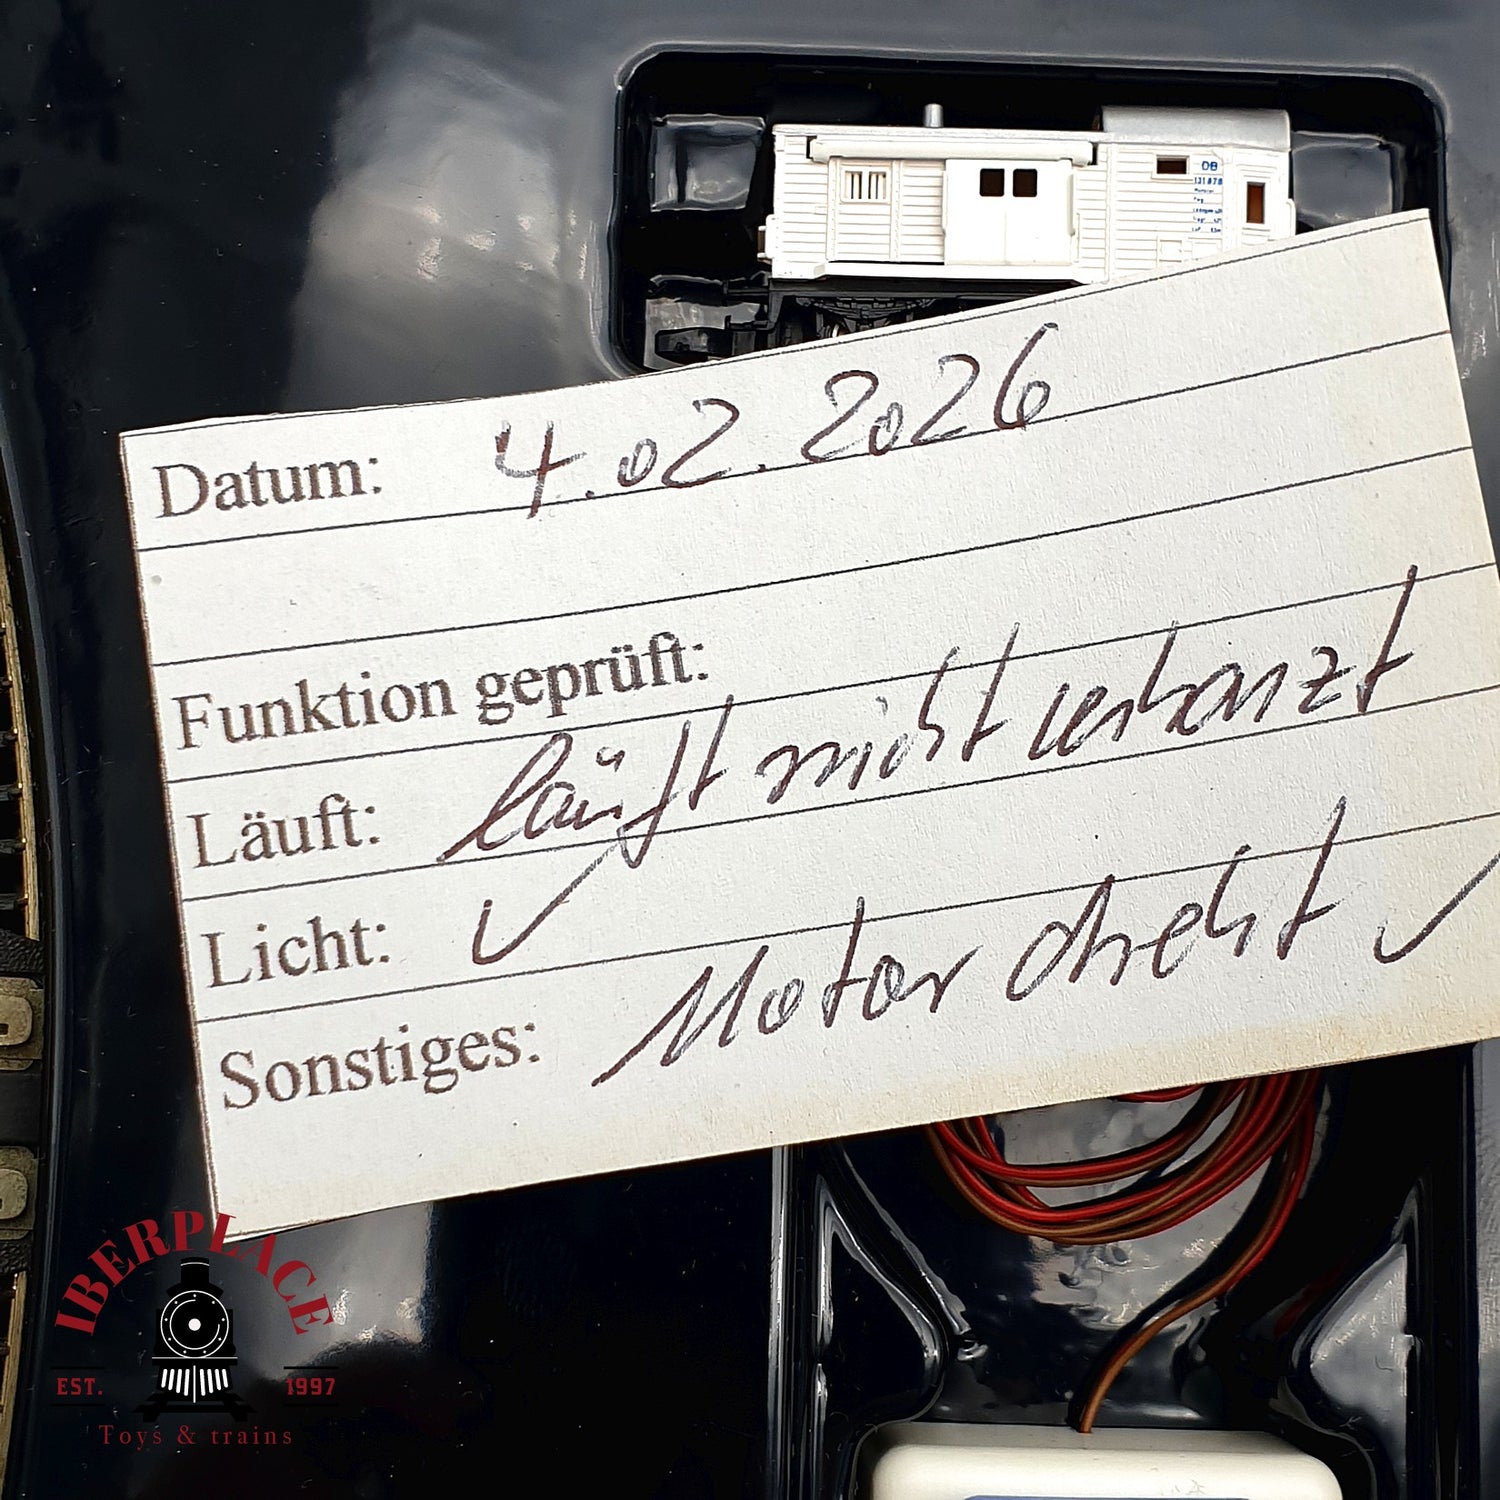 DB
131 878
Datum: 4.02.2026
Funktion geprüft:
Läuft: läuft nicht verharzt
Licht: ✓
Sonstiges: Motor dreht ✓
IBERPLACE
EST. 1997
Toys & trains